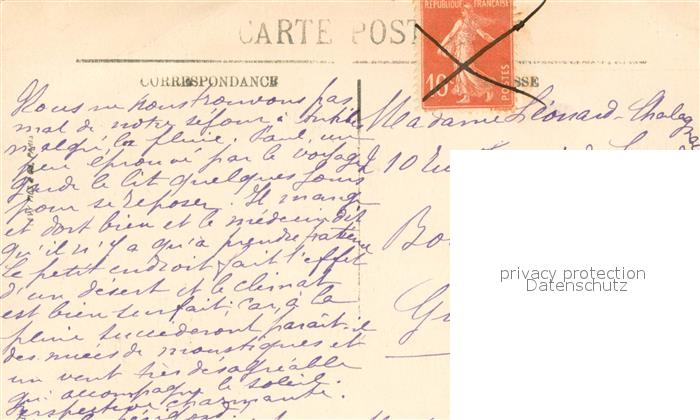 CARTE POST
RÉPUBLIQUE FRANÇAISE
10
POSTES
CORRESPONDANCE
SSE
Nous ne nous trouvons pas
mal de notre séjour à
malgré la pluie. Paul, un
peu éprouvé par le voyage
garde le lit quelques jours
pour se reposer. Il mange
et dort bien et le médecin dit
qu'il n'y a qu'à prendre patience
le petit endroit fait l'effet
d'un désert et le climat
est bien surfait; car, à la
pluie succéderont, paraît-il
des nuées de moustiques et
un vent très désagréable
qui accompagne le soleil.
Perspective charmante.
Madame Léonard-
10 Rue
Bo
G
privacy protection
Datenschutz